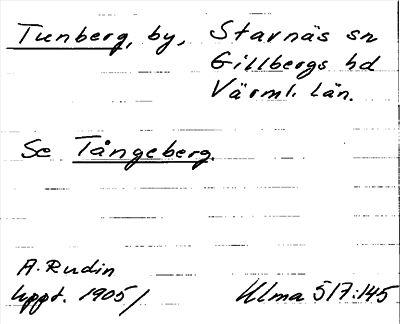 Tunberg, by, Stavnäs sn
Gillbergs hd
Värml. län.
Se Tångeberg.
A. Rudin
uppt. 1905/
Ulma 517:145